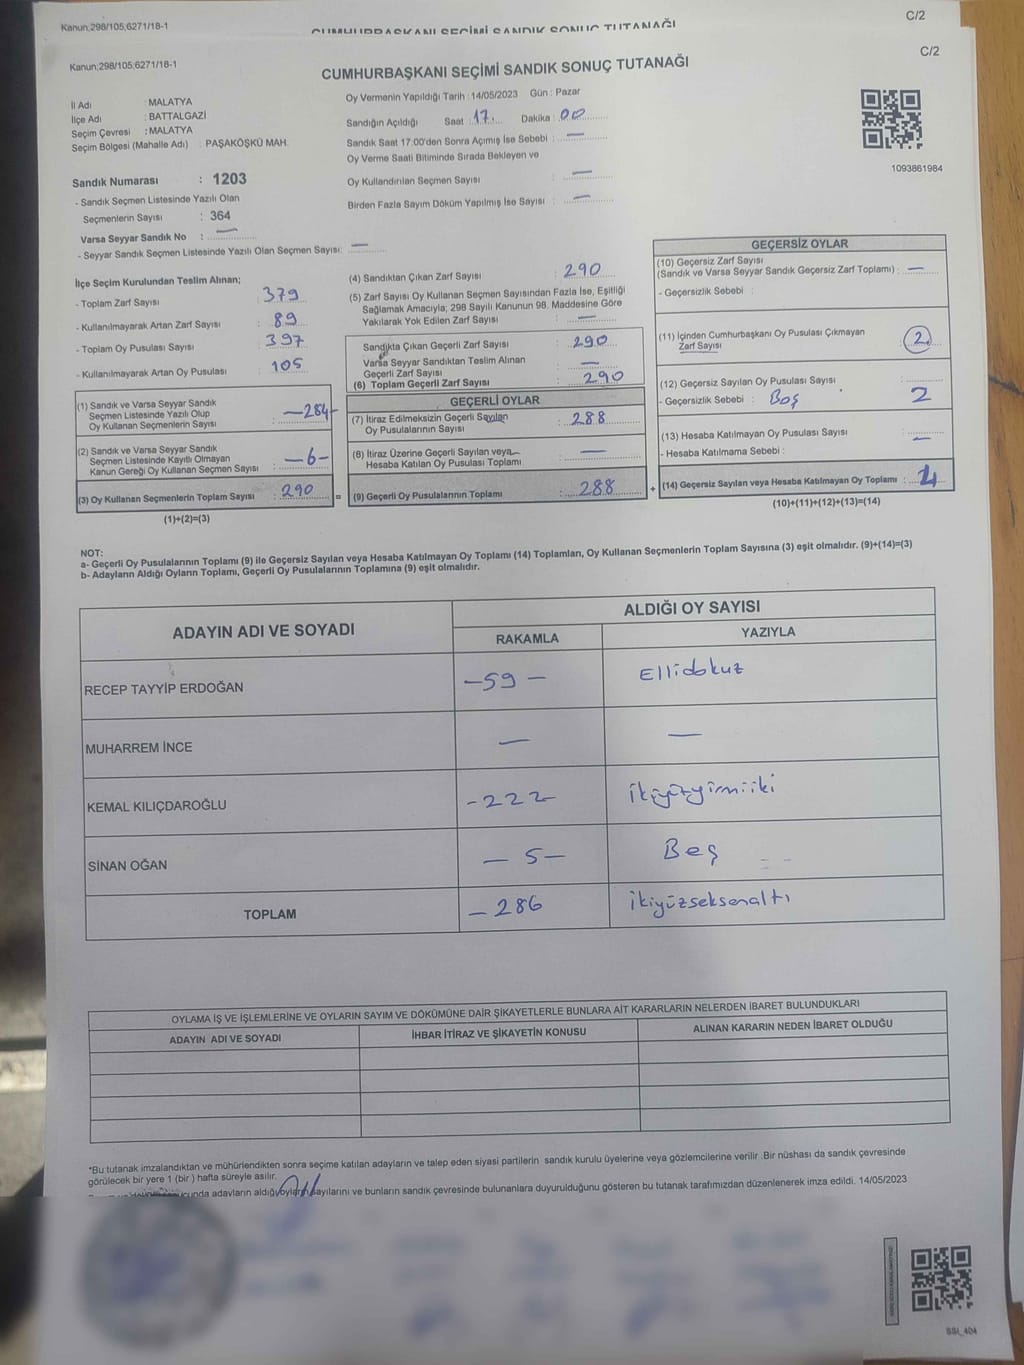 Kanun;298/105;6271/18-1
CUMHURBAŞKANI SEÇİMİ SANDIK SONUÇ TUTANAĞI
C/2
Kanun;298/105;6271/18-1
CUMHURBAŞKANI SEÇİMİ SANDIK SONUÇ TUTANAĞI
C/2
İl Adı : MALATYA
İlçe Adı : BATTALGAZİ
Seçim Çevresi : MALATYA
Seçim Bölgesi (Mahalle Adı) : PAŞAKÖŞKÜ MAH.
Oy Vermenin Yapıldığı Tarih : 14/05/2023 Gün : Pazar
Sandığın Açıldığı Saat : 17 Dakika : 00
Sandık Saat 17:00'den Sonra Açımış İse Sebebi : —
Oy Verme Saati Bitiminde Sırada Bekleyen ve
Oy Kullandırılan Seçmen Sayısı : —
Birden Fazla Sayım Döküm Yapılmış İse Sayısı : —
1093861984
Sandık Numarası : 1203
- Sandık Seçmen Listesinde Yazılı Olan
Seçmenlerin Sayısı : 364
Varsa Seyyar Sandık No : —
- Seyyar Sandık Seçmen Listesinde Yazılı Olan Seçmen Sayısı: —
İlçe Seçim Kurulundan Teslim Alınan;
- Toplam Zarf Sayısı : 379
- Kullanılmayarak Artan Zarf Sayısı : 89
- Toplam Oy Pusulası Sayısı : 397
- Kullanılmayarak Artan Oy Pusulası : 105
(1) Sandık ve Varsa Seyyar Sandık
Seçmen Listesinde Yazılı Olup
Oy Kullanan Seçmenlerin Sayısı : —284—
(2) Sandık ve Varsa Seyyar Sandık
Seçmen Listesinde Kayıtlı Olmayan
Kanun Gereği Oy Kullanan Seçmen Sayısı : —6—
(3) Oy Kullanan Seçmenlerin Toplam Sayısı : 290
(1)+(2)=(3)
(4) Sandıktan Çıkan Zarf Sayısı : 290
(5) Zarf Sayısı Oy Kullanan Seçmen Sayısından Fazla İse, Eşitliği
Sağlamak Amacıyla; 298 Sayılı Kanunun 98. Maddesine Göre
Yakılarak Yok Edilen Zarf Sayısı : —
Sandıkta Çıkan Geçerli Zarf Sayısı : 290
Varsa Seyyar Sandıktan Teslim Alınan
Geçerli Zarf Sayısı : —
(6) Toplam Geçerli Zarf Sayısı : 290
GEÇERLİ OYLAR
(7) İtiraz Edilmeksizin Geçerli Sayılan
Oy Pusulalarının Sayısı : 288
(8) İtiraz Üzerine Geçerli Sayılan veya
Hesaba Katılan Oy Pusulası Toplamı : —
= (9) Geçerli Oy Pusulalarının Toplamı : 288
GEÇERSİZ OYLAR
(10) Geçersiz Zarf Sayısı
(Sandık ve Varsa Seyyar Sandık Geçersiz Zarf Toplamı) : —
- Geçersizlik Sebebi :
(11) İçinden Cumhurbaşkanı Oy Pusulası Çıkmayan
Zarf Sayısı : 2
(12) Geçersiz Sayılan Oy Pusulası Sayısı :
- Geçersizlik Sebebi : Boş 2
(13) Hesaba Katılmayan Oy Pusulası Sayısı : —
- Hesaba Katılmama Sebebi :
+ (14) Geçersiz Sayılan veya Hesaba Katılmayan Oy Toplamı :
(10)+(11)+(12)+(13)=(14)
NOT:
a- Geçerli Oy Pusulalarının Toplamı (9) ile Geçersiz Sayılan veya Hesaba Katılmayan Oy Toplamı (14) Toplamları, Oy Kullanan Seçmenlerin Toplam Sayısına (3) eşit olmalıdır. (9)+(14)=(3)
b- Adayların Aldığı Oyların Toplamı, Geçerli Oy Pusulalarının Toplamına (9) eşit olmalıdır.
ADAYIN ADI VE SOYADI
ALDIĞI OY SAYISI
RAKAMLA YAZIYLA
RECEP TAYYİP ERDOĞAN —59— Ellidokuz
MUHARREM İNCE — —
KEMAL KILIÇDAROĞLU -222- ikiyüzyirmiiki
SİNAN OĞAN —5— Beş
TOPLAM —286 ikiyüzseksenaltı
OYLAMA İŞ VE İŞLEMLERİNE VE OYLARIN SAYIM VE DÖKÜMÜNE DAİR ŞİKAYETLERLE BUNLARA AİT KARARLARIN NELERDEN İBARET BULUNDUKLARI
ADAYIN ADI VE SOYADI İHBAR İTİRAZ VE ŞİKAYETİN KONUSU ALINAN KARARIN NEDEN İBARET OLDUĞU
*Bu tutanak imzalandıktan ve mühürlendikten sonra seçime katılan adayların ve talep eden siyasi partilerin sandık kurulu üyelerine veya gözlemcilerine verilir .Bir nüshası da sandık çevresinde
görülecek bir yere 1 (bir ) hafta süreyle asılır.
ucunda adayların aldığı oyların sayılarını ve bunların sandık çevresinde bulunanlara duyurulduğunu gösteren bu tutanak tarafımızdan düzenlenerek imza edildi. 14/05/2023
SSI_404